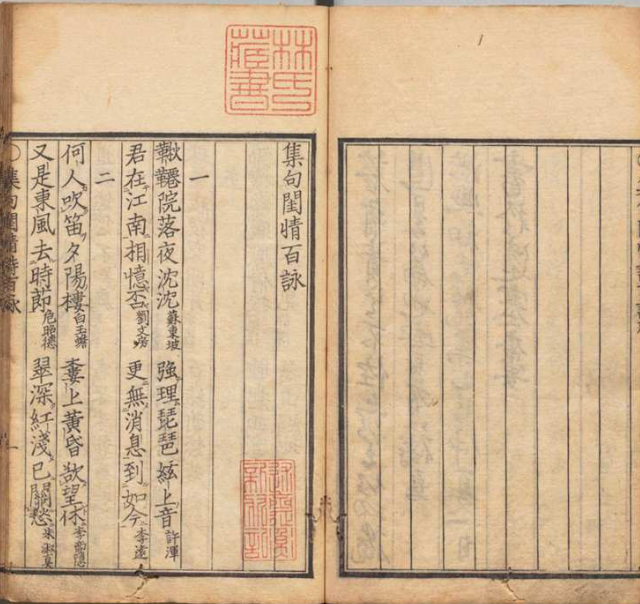 林氏藏書
集句閨情百詠
一
鞦韆院落夜沈沈蘇東坡 強理琵琶絃上音許渾
君在江南相憶否劉文房 更無消息到如今李遠
二
何人吹笛夕陽樓白玉蟾 上黃昏欲望休李商隱
又是東風去時節危昭德 翠深紅淺已關愁朱淑真
集句閨情詩百詠 一